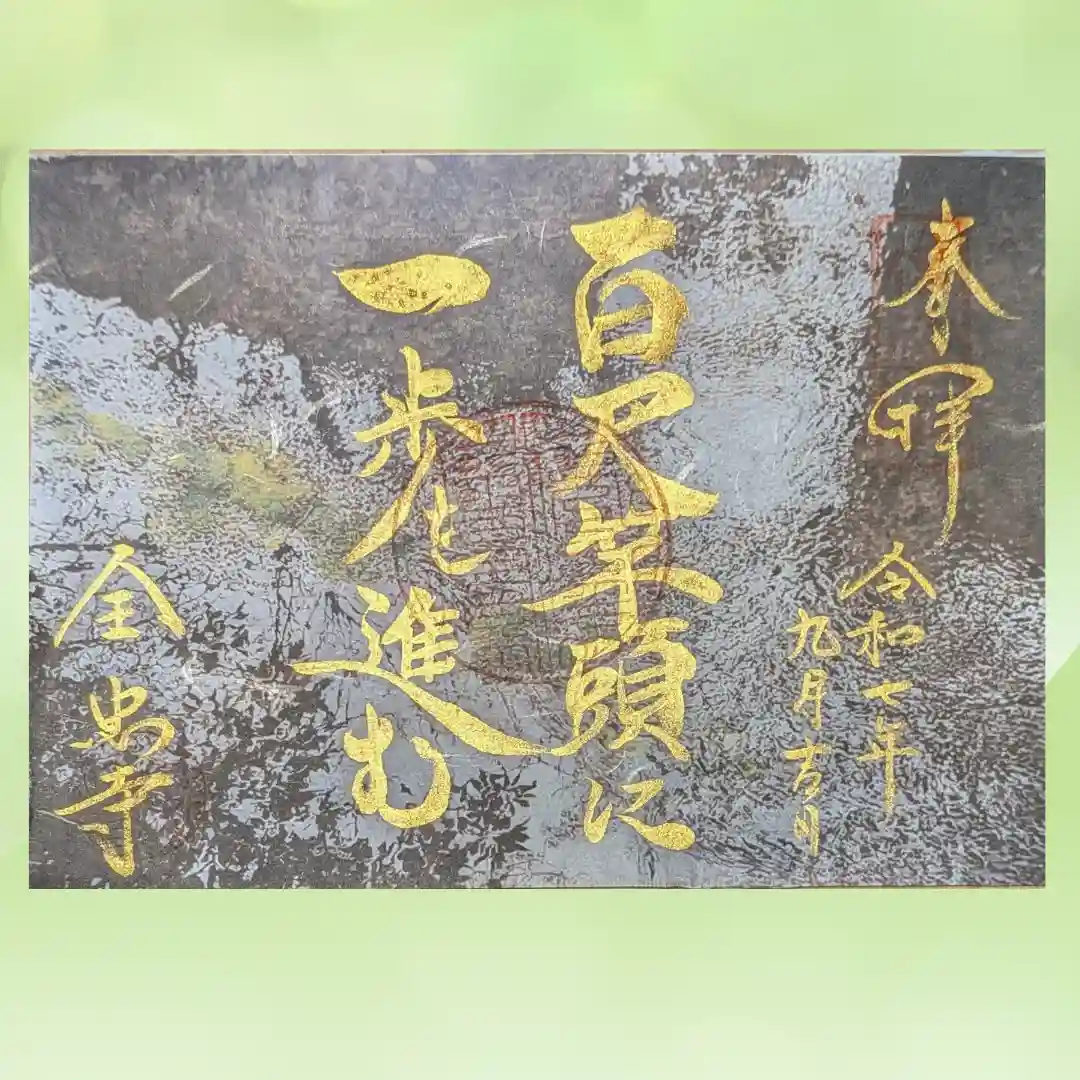 奉拝
令和七年
九月吉日
百尺竿頭に
一歩を進む
全忠寺